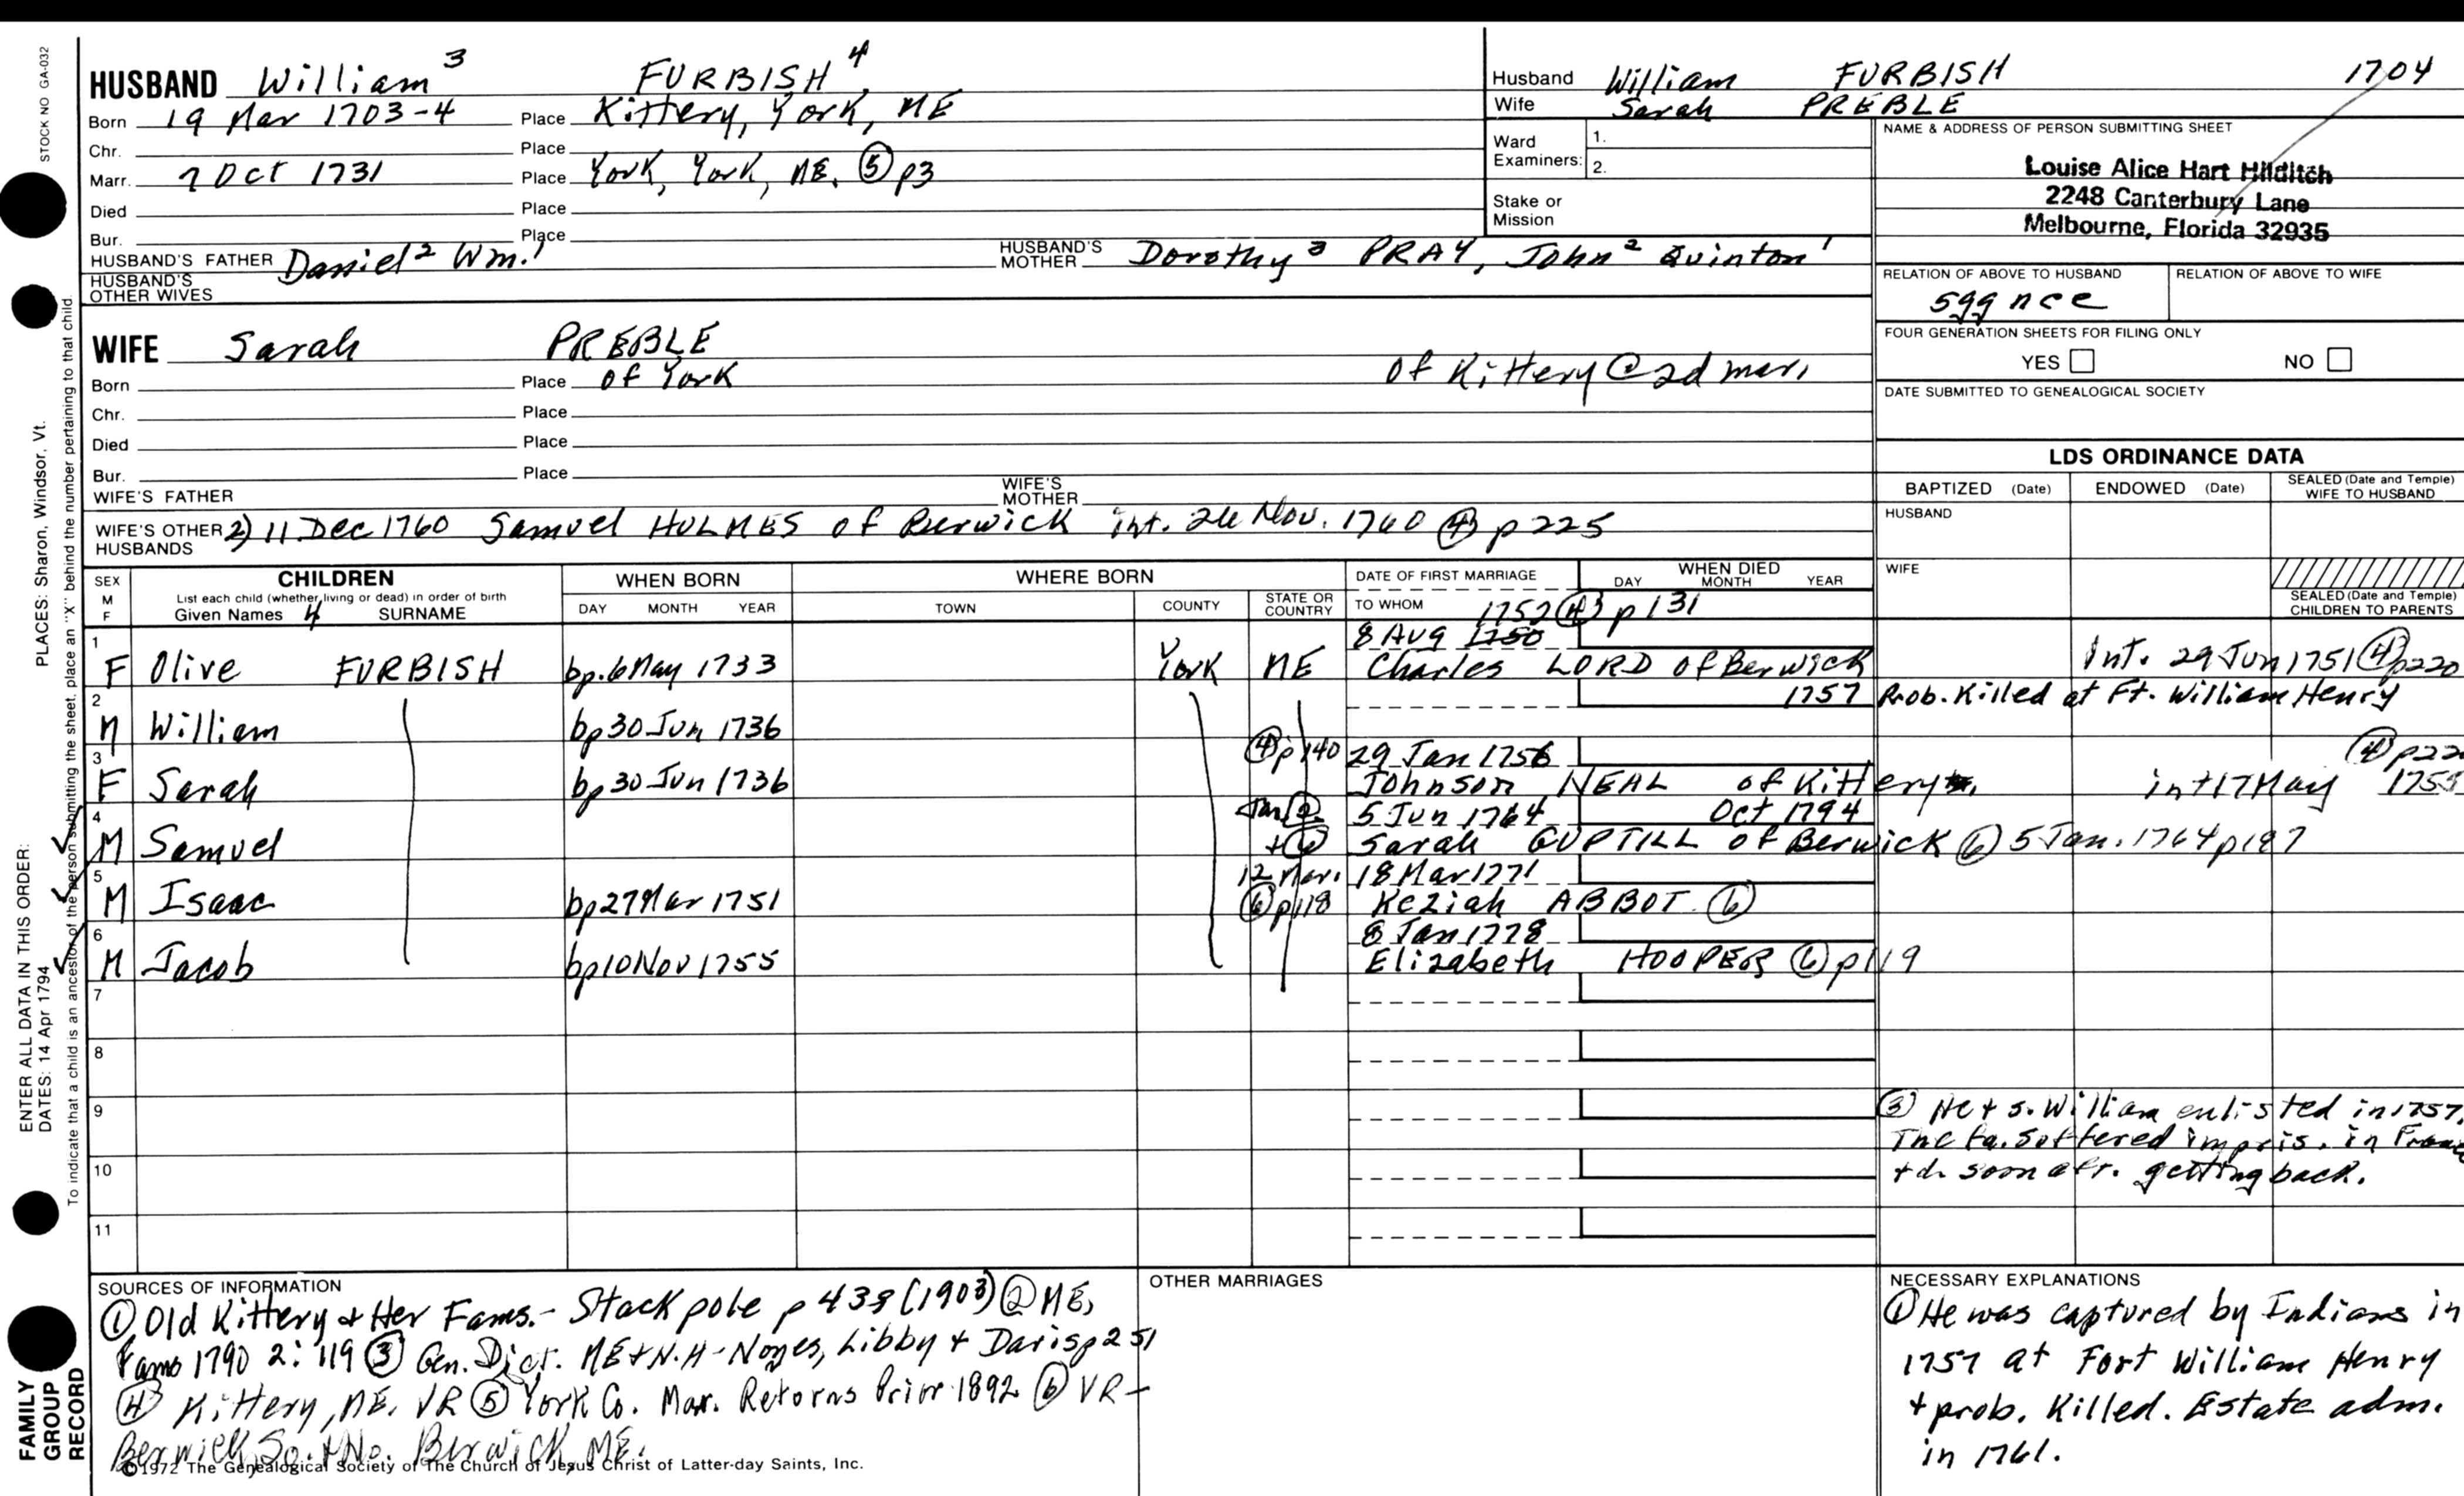 STOCK NO GA-032
HUSBAND William 3 FURBISH 4
Born 19 Mar 1703-4 Place Kittery, York, ME
Chr. Place
Marr. 7 Oct 1731 Place York, York, ME. ⑤ p3
Died Place
Bur. Place
HUSBAND'S FATHER Daniel 2 Wm. 1 HUSBAND'S MOTHER Dorothy 3 PRAY, John 2 Quinton 1
HUSBAND'S OTHER WIVES
WIFE Sarah PREBLE
Born Place of York of Kittery @ 2d mar.
Chr. Place
Died Place
Bur. Place
WIFE'S FATHER WIFE'S MOTHER
WIFE'S OTHER HUSBANDS 2) 11 Dec 1760 Samuel HOLMES of Berwick int. 26 Nov. 1760 ④ p225
Husband William FURBISH 1704
Wife Sarah PREBLE
Ward Examiners: 1.
2.
Stake or Mission
NAME & ADDRESS OF PERSON SUBMITTING SHEET
Louise Alice Hart Hilditch
2248 Canterbury Lane
Melbourne, Florida 32935
RELATION OF ABOVE TO HUSBAND RELATION OF ABOVE TO WIFE
5gg nce
FOUR GENERATION SHEETS FOR FILING ONLY
YES NO
DATE SUBMITTED TO GENEALOGICAL SOCIETY
LDS ORDINANCE DATA
BAPTIZED (Date) ENDOWED (Date) SEALED (Date and Temple) WIFE TO HUSBAND
HUSBAND
WIFE
SEALED (Date and Temple) CHILDREN TO PARENTS
SEX M F CHILDREN WHEN BORN WHERE BORN DATE OF FIRST MARRIAGE WHEN DIED
List each child (whether living or dead) in order of birth
Given Names 4 SURNAME DAY MONTH YEAR TOWN COUNTY STATE OR COUNTRY TO WHOM DAY MONTH YEAR
1752 ④ p131
1 8 Aug 1750
F Olive FURBISH bp. 6 May 1733 York ME Charles LORD of Berwick Int. 29 Jun 1751 ④ p220
2 1757 Prob. Killed at Ft. William Henry
M William bp 30 Jun 1736
3 ④ p140 29 Jan 1756 ④
F Sarah bp 30 Jun 1736 Johnson NEAL of Kittery int 17 May
4 Jan ②. 5 Jun 1764 Oct 1794
M Samuel + ⑥ Sarah GUPTILL of Berwick ⑥ 5 Jan. 1764 p187
5 12 Mar. 18 Mar 1771
M Isaac bp 27 Mar 1751 ⑥ p118 Keziah ABBOT ⑥
6 8 Jan 1778
M Jacob bp 10 Nov 1755 Elizabeth HOOPER ⑥ p119
7
8
9
10
11
③ He + s. William enlisted in 1757.
The fa. suffered impris. in
+ d. soon aft. getting back.
SOURCES OF INFORMATION
① Old Kittery + Her Fams. - Stackpole p 438 (1903) ② ME,
Fams 1790 2: 119 ③ Gen. Dict. ME + N.H - Noyes, Libby + Davis p 251
④ Kittery, ME. VR ⑤ York Co. Mar. Returns Prior 1892 ⑥ VR -
Berwick, So. + No. Berwick, ME.
©1972 The Genealogical Society of The Church of Jesus Christ of Latter-day Saints, Inc.
OTHER MARRIAGES
NECESSARY EXPLANATIONS
① He was captured by Indians in
1757 at Fort William Henry
+ prob. Killed. Estate adm.
in 1761.
PLACES: Sharon, Windsor, Vt.
ENTER ALL DATA IN THIS ORDER:
DATES: 14 Apr 1794
To indicate that a child is an ancestor of the person submitting the sheet, place an "X" behind the number pertaining to that child
FAMILY GROUP RECORD